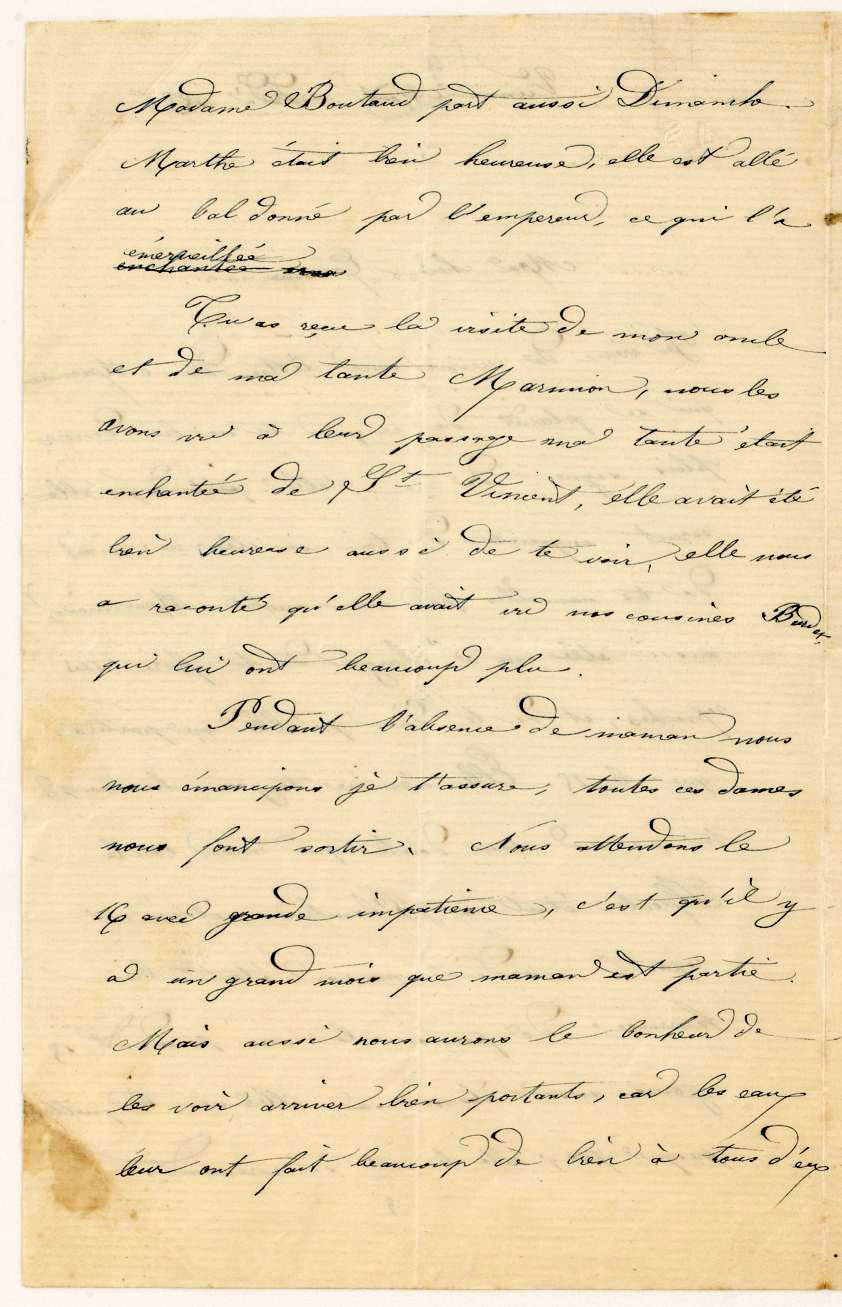 Madame Boutaud part aussi Dimanche.
Marthe était bien heureuse, elle est allé
au bal donné par l'empereur, ce qui l'a
émerveillée
enchantée
Tu as reçu la visite de mon oncle
et de ma tante Marmion, nous les
avons vu à leur passage ma tante était
enchantée de St Vincent, elle avait été
bien heureuse aussi de te voir, elle nous
a raconté qu'elle avait vu nos cousines
qui lui ont beaucoup plu.
Pendant l'absence de maman nous
nous émancipons je t'assure, toutes ces dames
nous font sortir. Nous attendons le
avec grande impatience, c'est qu'il y
a un grand mois que maman est partie.
Mais aussi nous aurons le bonheur de
les voir arriver bien portants, car les eaux
leur ont fait beaucoup de bien à tous d'eux